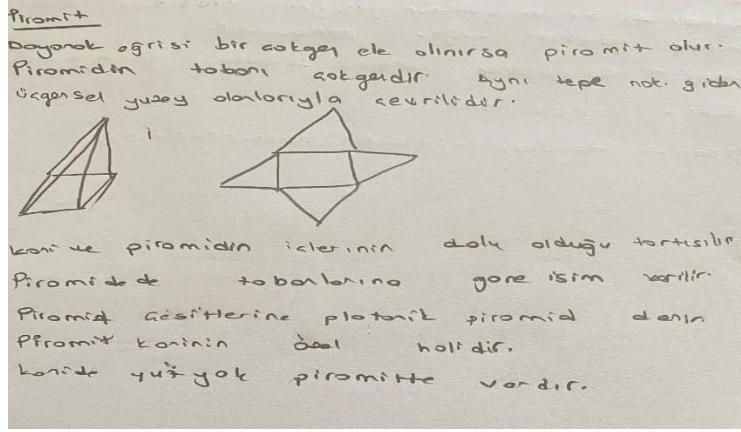 Piromit
Dayanak eğrisi bir çokgen ele alınırsa piromit olur.
Piromidin tabanı çokgendir. Aynı tepe nok. giden
üçgensel yüzey alanlarıyla çevrilidir.
Koni ve piromidin içlerinin dolu olduğu tartışılır
Piromidede tabanlarına göre isim verilir.
Piromid çeşitlerine platonik piromid denir
Piromit koninin özel halidir.
Konide yüz yok piromitte vardır.